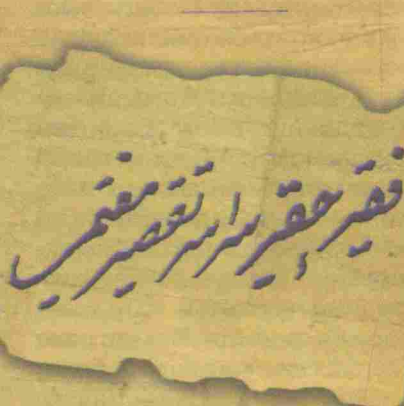 فقیر حقیر سراسر تقصیر مفتی